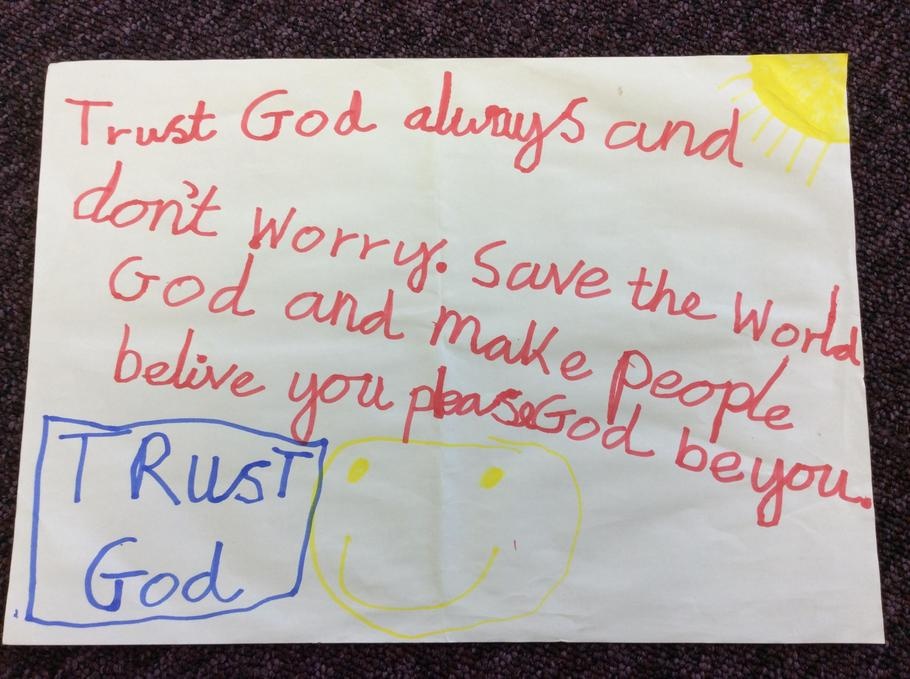 Trust God always and
don't worry. Save the World
God and make People
belive you please God be you.
TRUST
God